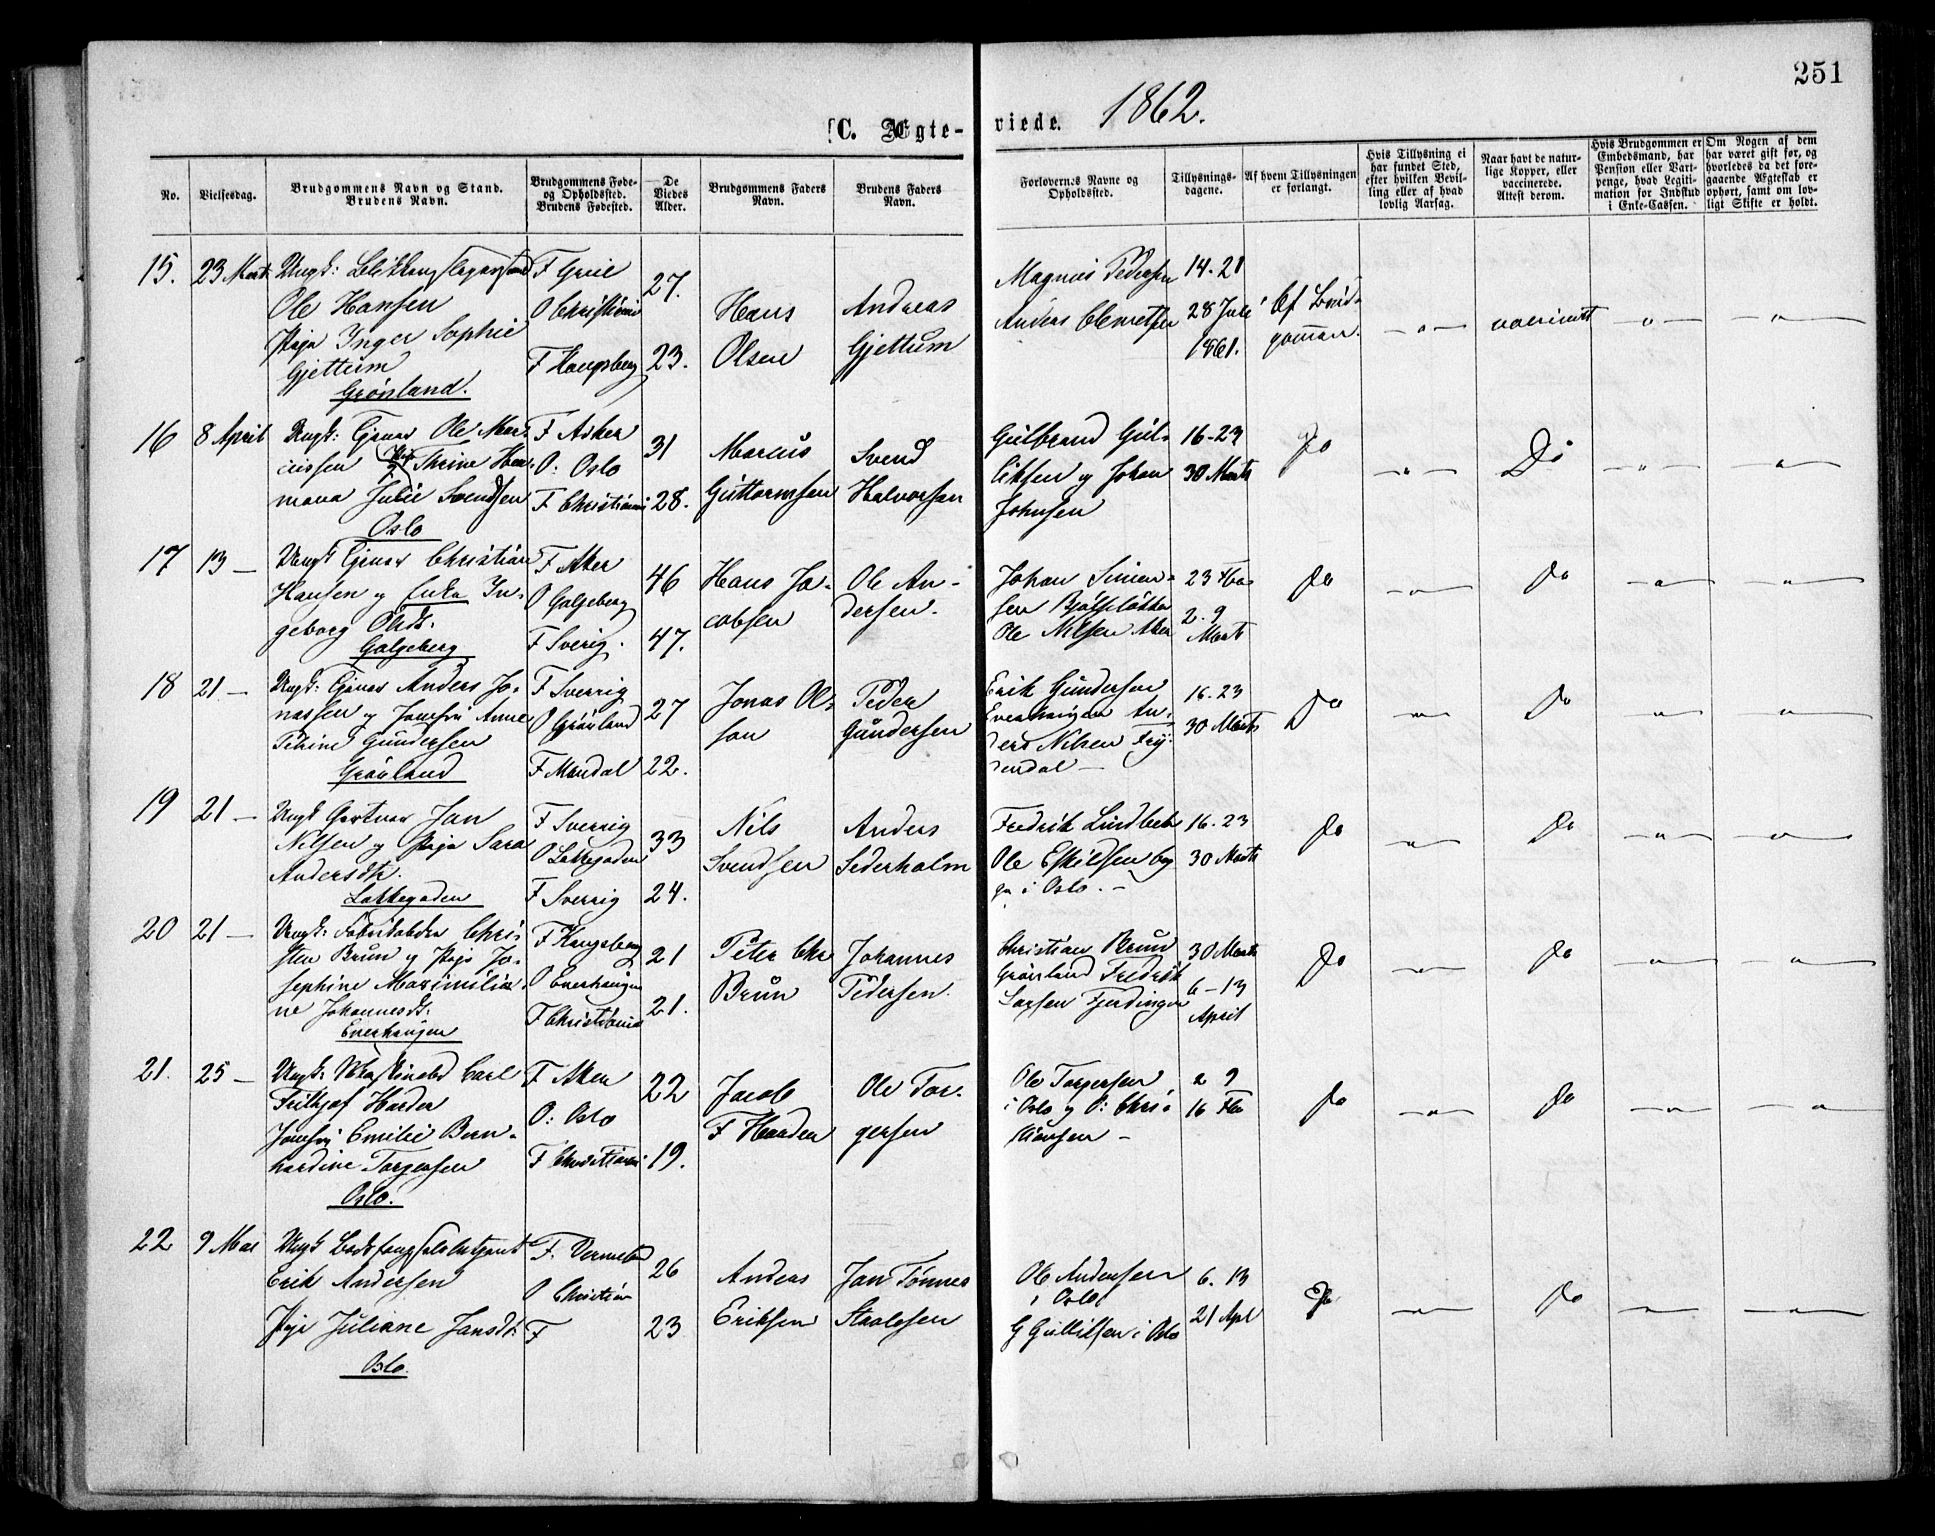 251
1862.
C. Ægte-
viede.
No.
Vielsesdag.
Brudgommens Navn og Stand.
Brudens Navn.
Brudgommens Føde-
og Opholdssted.
Brudens Fødested.
De
Viedes
Alder.
Brudgommens Faders
Navn.
Brudens Faders
Navn.
Forlovernes Navne og
Opholdssted.
Tillysnings-
dagene.
Af hvem Tillysningen
er forlangt.
Hvis Tillysning ei
har fundet Sted,
efter hvilken Bevil-
ling eller af hvad
lovlig Aarsag.
Naar havt de natur-
lige Kopper, eller
vaccinerede.
Attest derom.
Hvis Brudgommen er
Embedsmand, har
Pension eller Vart-
penge, hvad Legiti-
mation for Indskud
i Enke-Cassen.
Om Nogen af dem
har været gift før, og
hvorledes da det fore-
gaaende Ægteskab er
ophørt, samt om lov-
ligt Skifte er holdt.
15.
23 Marts
Ungk:
Ole Hansen
Pige Inger Sophie
Gjettum
Grønland.
F
O Christiania
F Kongsberg
27.
23.
Hans
Olsen
Andreas
Gjettum
Magnus Pedersen
Anders
14-21
28 Juli
1861.
Af Brud-
gommen.
vaccineret
16
8 April
Ungk: Tjener Ole Mar-
cussen Thrine Her-
mana Julie Svendsen
Oslo
F Asker
O: Oslo
F Christiania
31
28.
Marcus
Guttormsen
Svend
Halvorsen
Gulbrand Gul-
liksen og Johan
Johnsen
16-23
30 Marts
Do
Do
17
13 —
Ungk Tjener Christian
Hansen og Enke In-
geborg Olsdt:
Galgeberg
F Aker
O Galgeberg
F Sverig.
46
47.
Hans Ja-
cobsen
Ole An-
dersen.
Johan Simen-
sen
Ole Nilsen Aker
23
2-9
Marts
Do
Do
18
21 —
Ungk: Tjener Anders Jo-
nassen og Jomfru Anne
Gundersen
Grønland
F Sverrig
O Grønland
F Mandal
27
22.
Jonas Ol-
sen
Peder
Gundersen
Erik Gundersen
Enerhaugen An-
ders Nilsen Fry-
dendal —
16-23
30 Marts
Do
Do
19
21 —
Ungk Gartner Jan
Nilsen og Pige Sara
Andersdt.
Lakkegaden
F Sverrig
O Lakkegaden
F Sverrig
33
24.
Nils
Svendsen
Anders
Sederholm
Fredrik Lindbek
Ole Eskildsen beg-
ge i Oslo. —
16-23
30 Marts
Do
Do
20
21 —
Ungk: Fabrikarbeider Chri-
sten Brun og Pige Jo-
sephine Maximilia-
ne Johannesdt:
Enerhaugen
F Kongsberg
O Enerhaugen
F Christiania
21
21.
Peter Chr
Brun
Johannes
Pedersen.
Christian Brun
Grønland Fredrik
Larsen Fjerdingen
30 Marts
6-13
April
Do
Do
21.
25 —
Ungk: Maskinarbd Carl
Frithjof Harder
Jomfru Emilie Bern-
hardine Torgersen
Oslo.
F Aker
O: Oslo
F Christiania
22
19.
Jacob
F Harder
Ole Tor-
gersen
Ole Torgersen
i Oslo og O: Chri-
stiansen —
2 9
16 Feb
Do
Do
22
9 Mai
Ungk
Erik Andersen
Pige Juliane Jansdt:
Oslo.
F. Vermeland
O Christian
F
26
23
Anders
Eriksen
Jan Tønnes
Staalesen
Ole Andersen
i Oslo
G Gullilsen i Oslo
6. 13
21 Apl
Do
Do